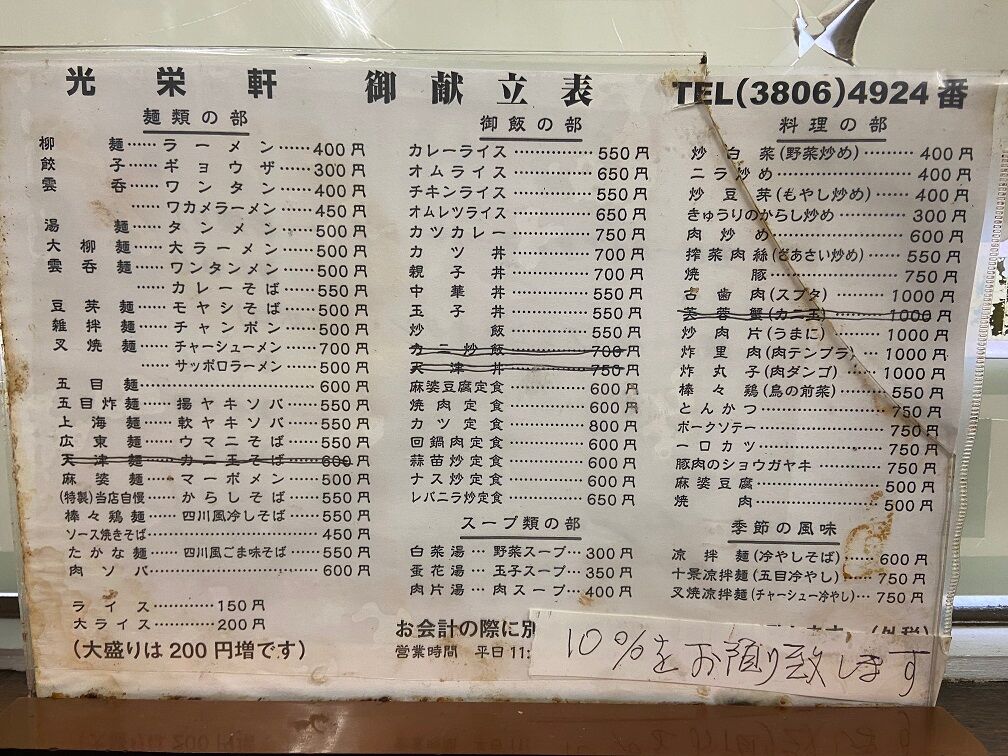 光栄軒 御献立表 TEL(3806)4924番
麺類の部
柳麺……ラーメン……400円
餃子……ギョウザ……300円
雲呑……ワンタン……400円
ワカメラーメン……450円
湯麺……タンメン……500円
大柳麺…大ラーメン……500円
雲呑麺…ワンタンメン……500円
カレーそば……500円
豆芽麺…モヤシそば……500円
雑拌麺…チャンポン……500円
叉焼麺…チャーシューメン……700円
サッポロラーメン……500円
五目麺……600円
五目炸麺…揚ヤキソバ……550円
上海麺…軟ヤキソバ……550円
広東麺…ウマニそば……550円
天津麺…カニ玉そば……600円
麻婆麺…マーボメン……500円
(特製)当店自慢…からしそば……550円
棒々鶏麺…四川風冷しそば……550円
ソース焼きそば……450円
たかな麺…四川風ごま味そば……550円
肉ソバ……600円
ライス……150円
大ライス……200円
(大盛りは200円増です)
御飯の部
カレーライス……550円
オムライス……650円
チキンライス……550円
オムレツライス……650円
カツカレー……750円
カツ丼……700円
親子丼……700円
中華丼……550円
玉子丼……550円
炒飯……550円
カニ炒飯……700円
天津丼……750円
麻婆豆腐定食……600円
焼肉定食……600円
カツ定食……800円
回鍋肉定食……600円
蒜苗炒定食……600円
ナス炒定食……600円
レバニラ炒定食……650円
スープ類の部
白菜湯…野菜スープ…300円
蛋花湯…玉子スープ…350円
肉片湯…肉スープ…400円
お会計の際に別
営業時間 平日11:
料理の部
炒白菜(野菜炒め)……400円
ニラ炒め……400円
炒豆芽(もやし炒め)……400円
きゅうりのからし炒め……300円
肉炒め……600円
搾菜肉絲(ざあさい炒め)……550円
焼豚……750円
古歯肉(スブタ)……1000円
芙蓉蟹(カニ玉)……1000円
炒肉片(うまに)……1000円
炸里肉(肉テンプラ)……1000円
炸丸子(肉ダンゴ)……1000円
棒々鶏(鳥の前菜)……550円
とんかつ……750円
ポークソテー……750円
一口カツ……750円
豚肉のショウガヤキ……750円
麻婆豆腐……500円
焼肉……500円
季節の風味
凉拌麺(冷やしそば)……600円
十景凉拌麺(五目冷やし)……750円
叉焼凉拌麺(チャーシュー冷やし)…750円
(外税)
10%をお預り致します